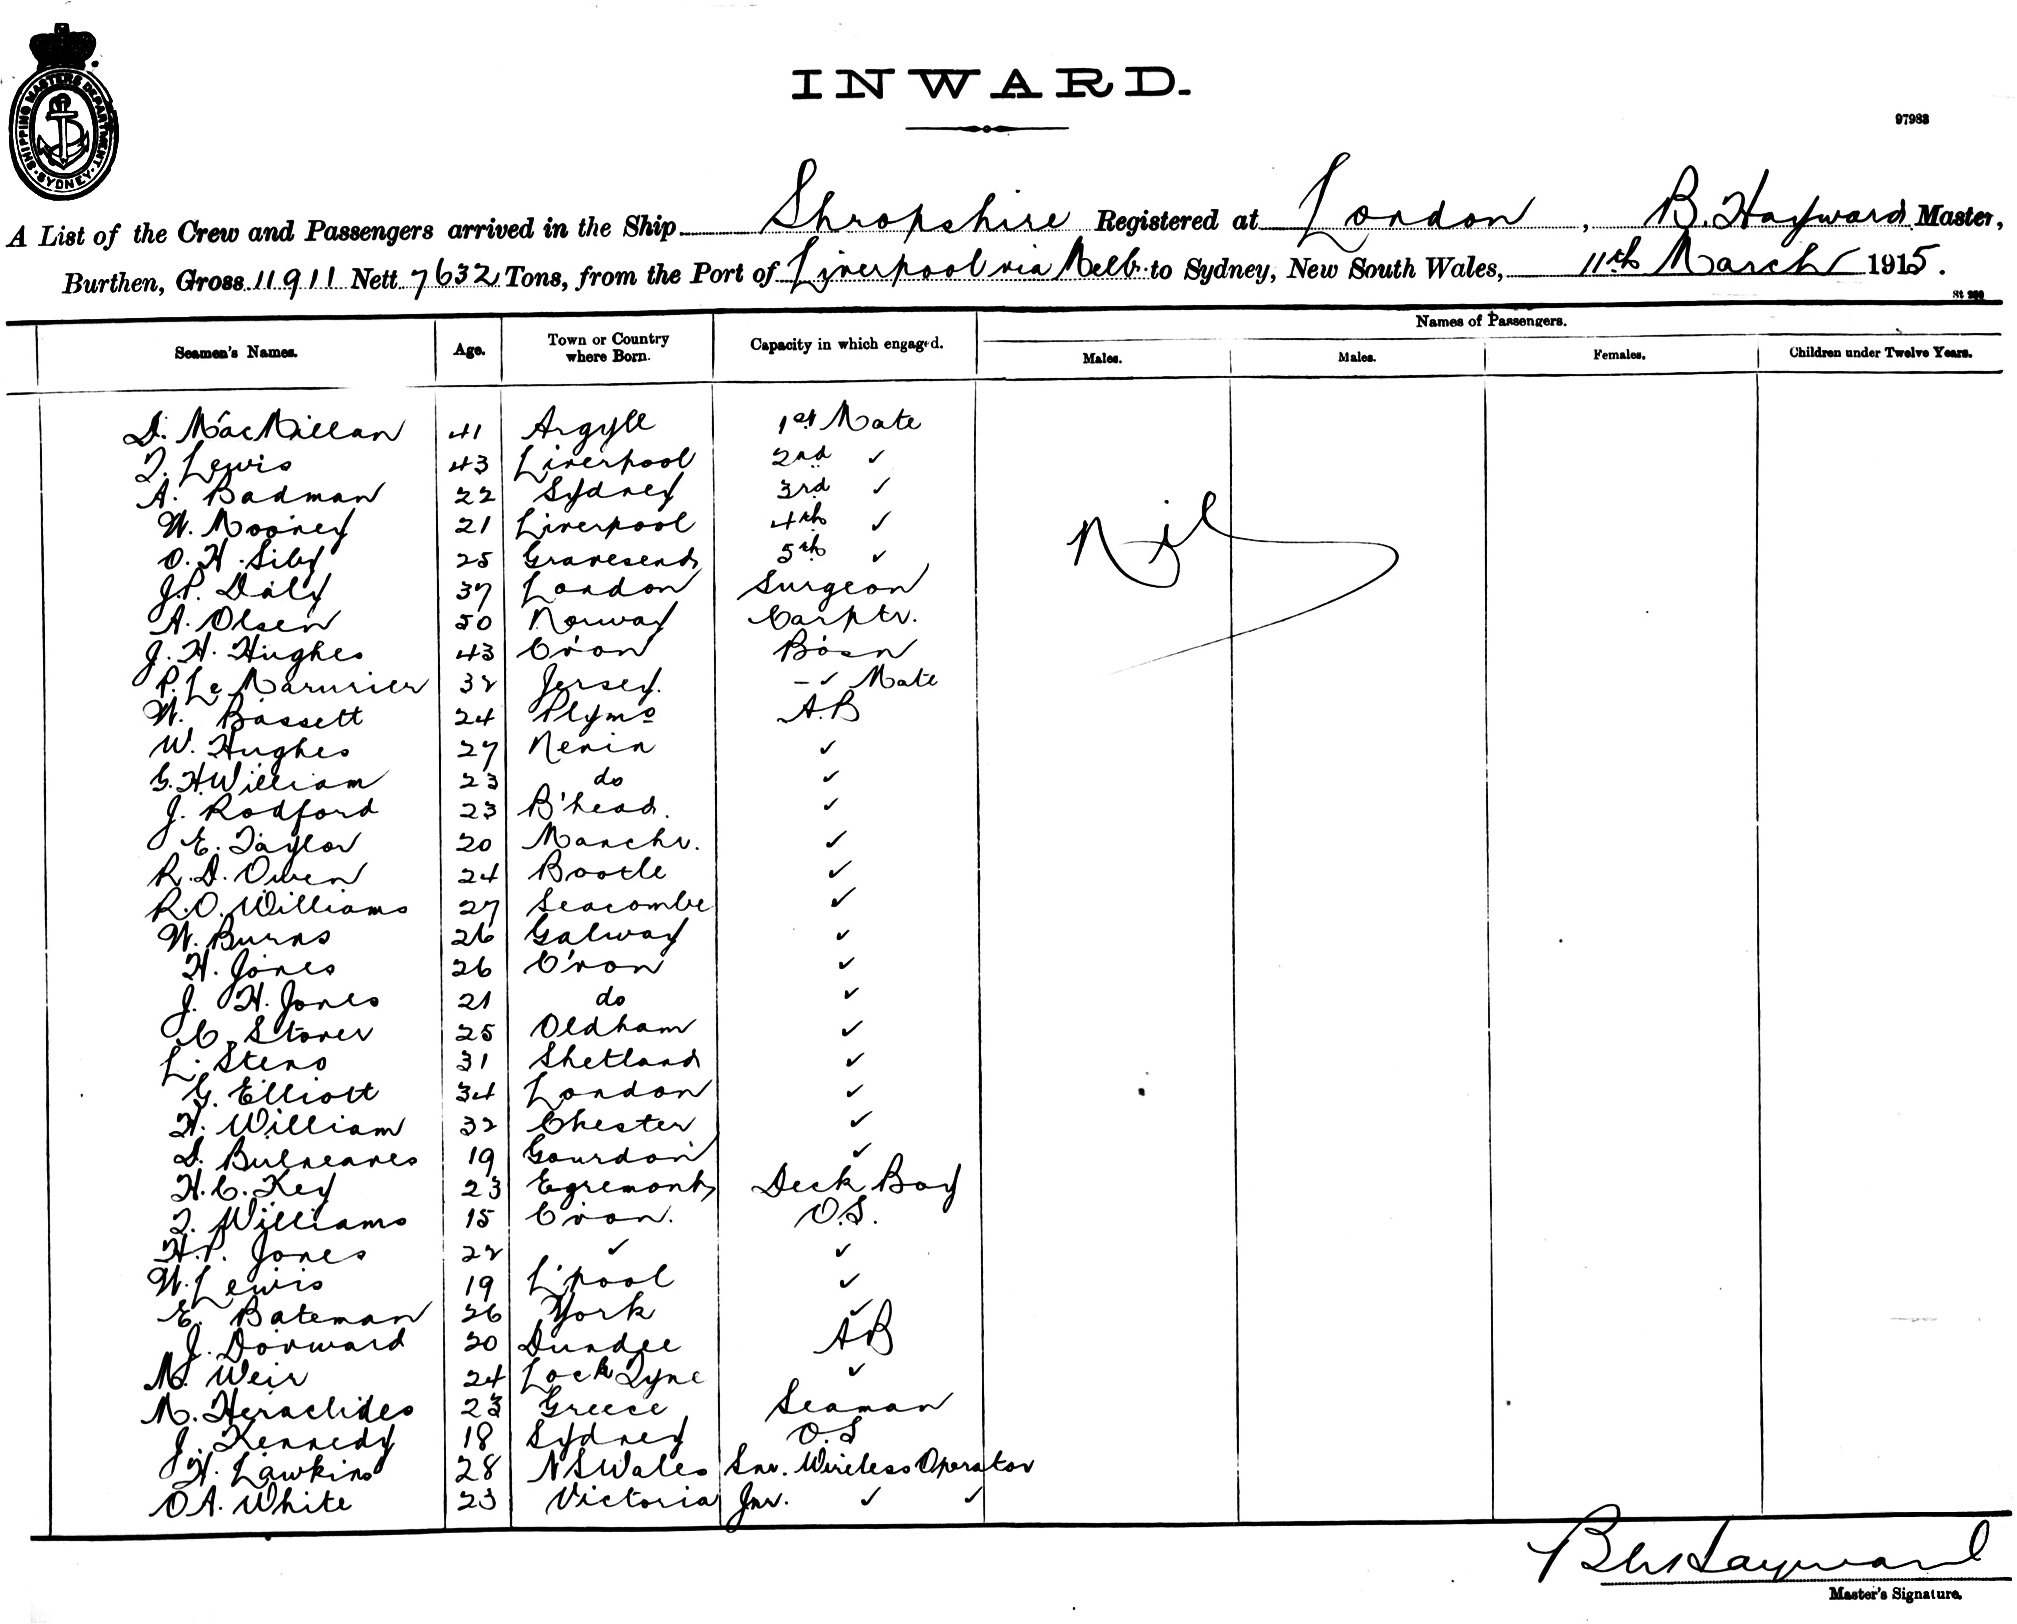 SHIPPING MASTERS DEPARTMENT
SYDNEY
INWARD.
97983
A List of the Crew and Passengers arrived in the Ship Shropshire Registered at London, B. Hayward Master,
Burthen, Gross 11911 Nett 7632 Tons, from the Port of Liverpool via Melb. to Sydney, New South Wales, 11th March 1915.
Names of Passengers.
Seamen's Names. Age. Town or Country where Born. Capacity in which engaged. Males. Males. Females. Children under Twelve Years.
D. MacMillan 41 Argyll 1st Mate
T. Lewis 43 Liverpool 2nd ✓
A. Badman 22 Sydney 3rd ✓
W. Mooney 21 Liverpool 4th ✓
Nil
O. H. Siby 25 Gravesend 5th ✓
J.P. Daly 37 London Surgeon
A. Olsen 50 Norway Carptr.
J. H. Hughes 43 C'von Bosn
P. Le Marurier 32 Jersey. - ✓ Mate
W. Bassett 24 Plymo A.B
W. Hughes 27 Nevin ✓
G. H William 23 do ✓
J. Rodford 23 B'head. ✓
E. Taylor 20 Manchr. ✓
R. D. Owen 24 Bootle ✓
R.O. Williams 27 Seacombe ✓
W. Burns 26 Galway ✓
H. Jones 26 C'von ✓
J. H. Jones 21 do ✓
C. Storer 25 Oldham ✓
L. Steno 31 Shetland ✓
G. Elliott 34 London ✓
H. William 32 Chester ✓
D. 19 Gourdon ✓
H. C. Key 23 Egremont Deck Boy
T. Williams 15 C'von. O.S.
H.P. Jones 22 ✓ ✓
W. Lewis 19 L'pool ✓
E. Bateman 26 York ✓
J. Dorward 20 Dundee AB
M. Weir 24 Lock Tyne ✓
M. Heraclides 23 Greece Seaman
J. Kennedy 18 Sydney O.S
H. Lawkins 28 NSWales Snr. Wireless Operator
O A. White 23 Victoria Jnr. ✓ ✓
Hayward
Master's Signature.